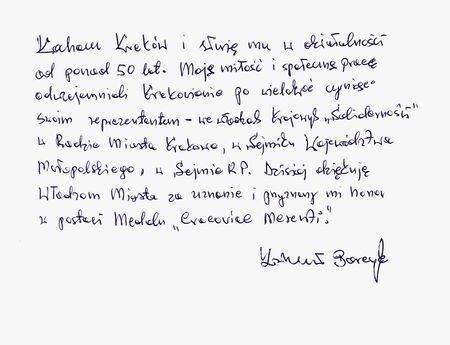 Kocham Kraków i służę mu w działalności
od ponad 50 lat. Moją miłość i społeczną pracę
odwzajemniali Krakowianie po wielokroć czyniąc
swoim reprezentantem - we władzach Krajowych „Solidarności”
w Radzie Miasta Krakowa, w Sejmiku Województwa
Małopolskiego, w Sejmie R.P. Dzisiaj dziękuję
Władzom Miasta za uznanie i przyznany mi honor
w postaci Medalu „Cracoviae Merenti.”